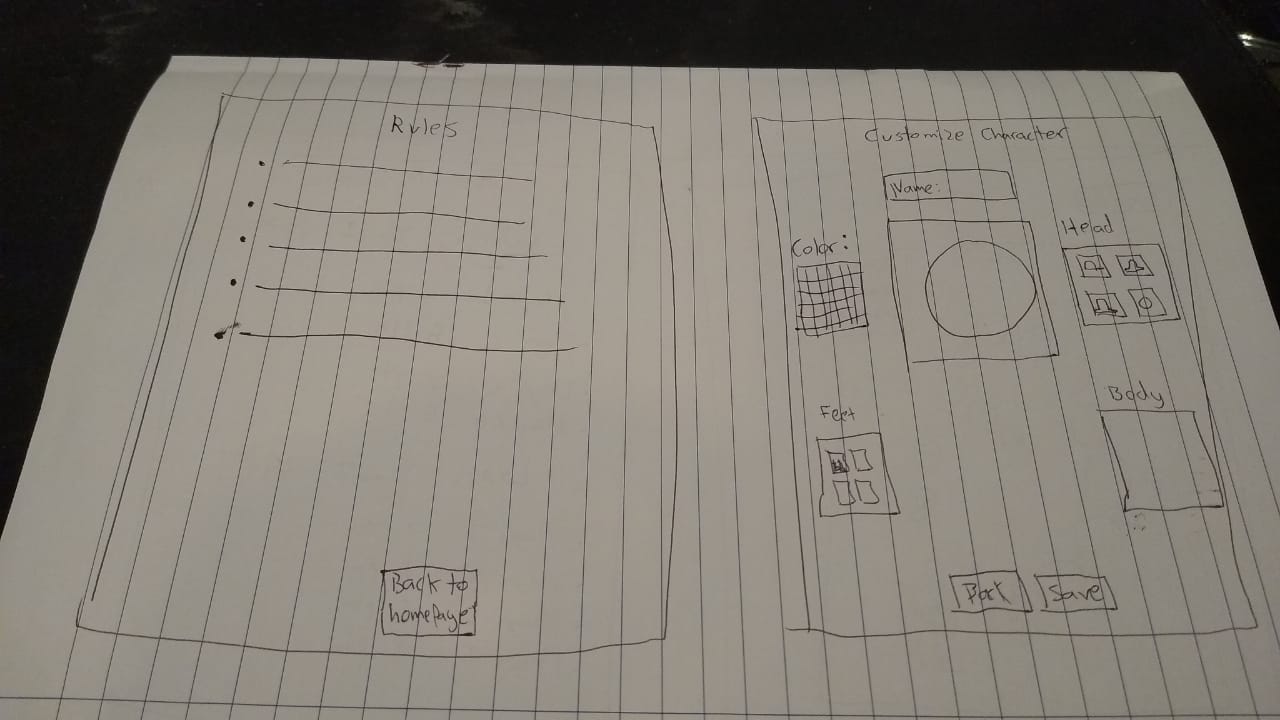 Rules
Back to
homepage
Customize Character
Name:
Color:
Head
Feet
Body
Back
Save